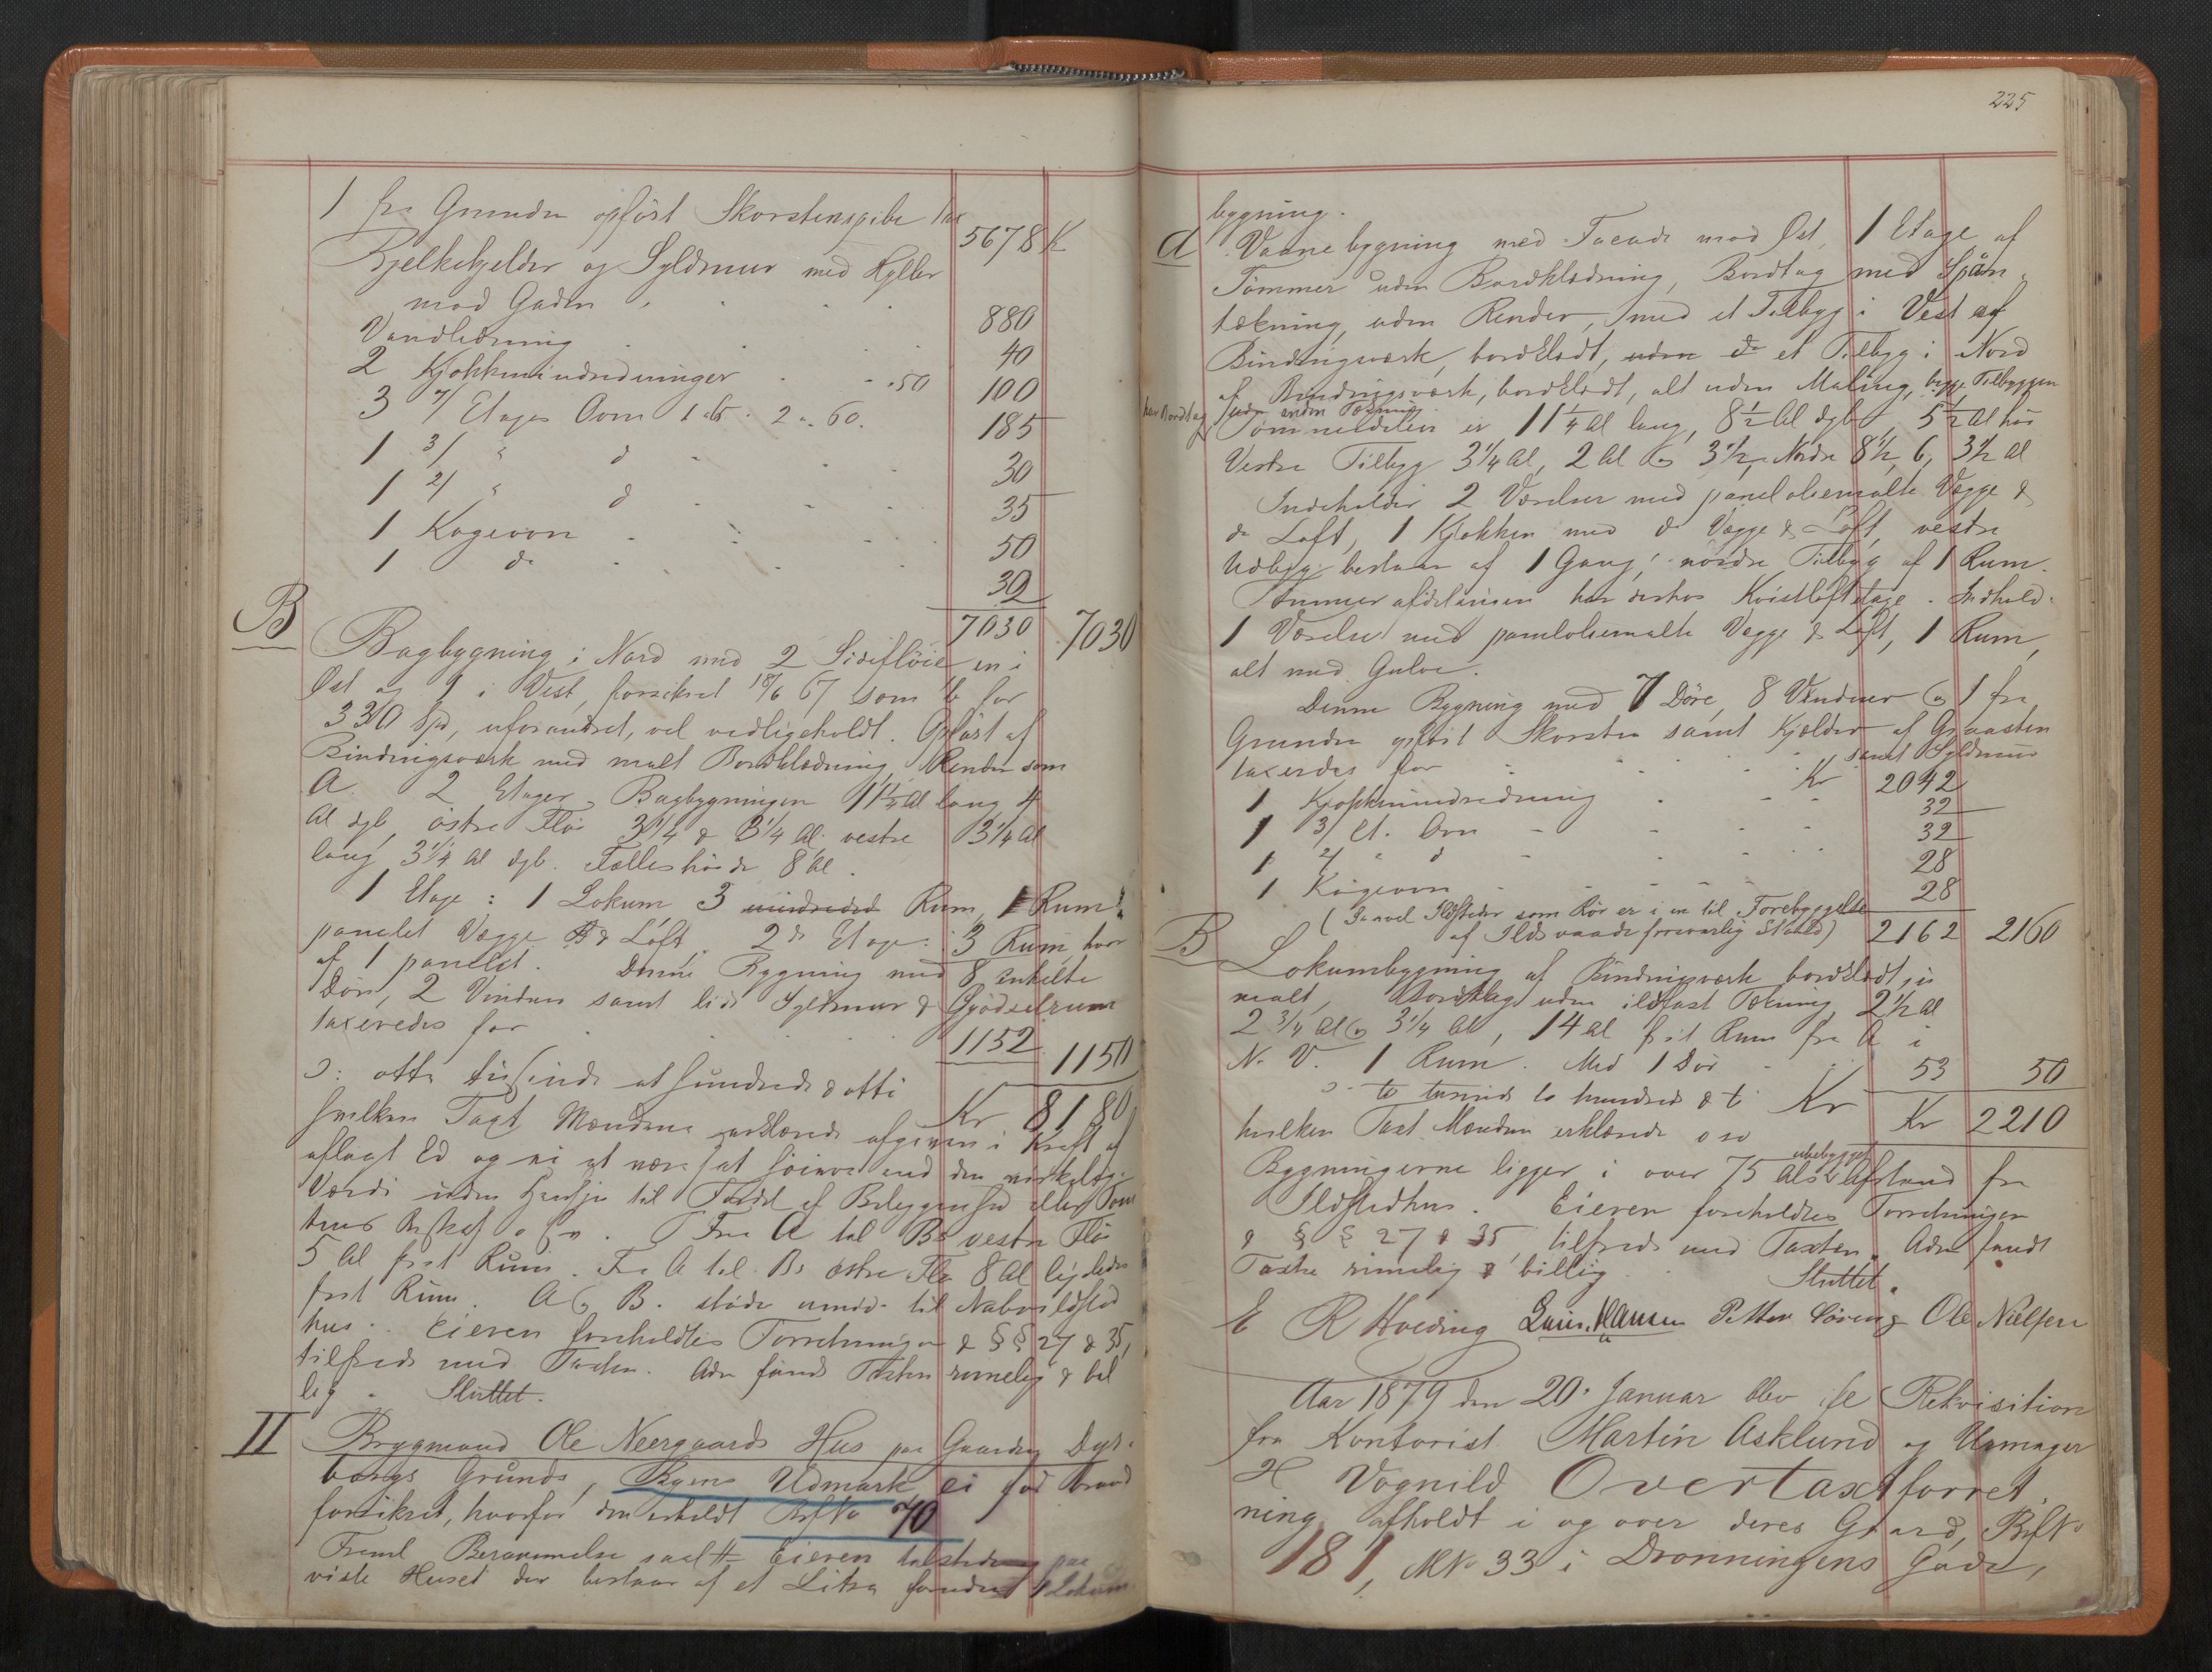 1 fra Grunden opført Skorstenspibe tax 5678 K
Bjelkekjelder og Syldmur med Hyller
mod Gaden 880
Vandledning 40
2 Kjøkkenindredninger 50 100
3 4/ Etages Ovne 1 65 2 a 60. 185
1 3/ " d 30
1 2/ " d 35
1 Kogeovn 50
1 do 32
7030 7030
B Bagbygning i Nord med 2 Sidefløie en i
Øst og 1 i Vest, forsikret 18/6 67 som b for
330 Spd, uforandret, vel vedligeholdt. Opført af
Bindingsværk med malt Bordklædning, Render som
A. 2 Etager, Bagbygningen 11 1/2 Al lang 4
Al dyb, østre Fløi 3 1/4 & 3 1/4 Al. vestre 3 1/4 Al
lang 3 1/4 Al dyb. Fælleshøide 8 Al.
1 Etage: 1 Lokum 3 Rum, 1 Rum
panelet Vægge & Loft. 2d Etage: 3 Rum, hvor
af 1 panelet. Denne Bygning med 8 enkelte
Døre, 2 Vinduer samt lidt Syldmur & Gjødselrum
taxeredes for 1152 1150
ɔ: otte tusinde et hundrede & otti Kr 8180
hvilken Taxt Mændene erklærede afgiven i Kraft af
aflagt Ed og ei at være sat høiere end den virkelige
Værdi uden Hensyn til Stedet el Beliggenhed eller Tom
tens Beskaf o s v. Fra A til Bs vestre Fløi
5 Al frit Rum. Fra A til Bs østre Flø 8 Al ligeledes
frit Rum. A og B. støde umid. til Naboildsted
hus. Eieren foreholdtes Forretningen & §§ 27 & 35,
tilfreds med Taxten. Adm fandt Taxten rimelig & bil
lig. Sluttet.
II Brygmand Ole Neergaards Hus paa Gaarden Dyb-
vangs Grund, Byens Udmark ei før brand
forsikret, hvorfor den erholdt BrfNo 70
Freml Berammelse saal Eieren tilstede paa
viste Huset der bestaar af et Litra foruden 1 Lokum
225
bygning.
A Vaanebygning med Facade mod Øst, 1 Etage af
Tømmer uden Bordklædning, Bordtag med Spån-
tækning, uden Render, med et Tilbyg i Vest af
Bindingsværk, bordklædt, uden d et Tilbyg i Nord
af Bindingsværk, bordklædt, alt uden Maling, begge Tilbyggen
har Bordtag uden anden Tækning
Tømmerdelen er 11 1/4 Al lang, 8 1/2 Al dyb, 5 1/2 Al høi
Vestre Tilbyg 3 1/4 Al, 2 Al og 3 1/2, Nordre 8 1/2, 6, 3 1/2 Al
Indeholder 2 Værelser med panel oliemalte Vægge &
do Loft, 1 Kjøkken med d Vægge & Loft, vestre
Udbyg bestaar af 1 Gang, nordre Tilbyg af 1 Rum.
Tømmerafdelingen har derhos Kvistloftetage. Indhold:
1 Værelse med paneloliemalte Vægge & Loft, 1 Rum,
alt med Gulve.
Denne Bygning med 7 Døre, 8 Vinduer og 1 fra
Grunden opført Skorsten samt Kjælder af Graasten
samt Syldmur
taxerdes for Kr 2042
1 Kjøkkenindredning 32
1 3/ Et. Ovn 32
1 2/ " d 28
1 Kogeovn 28
(Saavel Ildsteder som Rør er i en til Forebyggelse
af Ildsvaade forsvarlig Stand) 2162 2160
B Lokumbygning af Bindingsværk bordklædt, ei
malt, Bordtag uden ildfast Tækning 2 1/2 Al
2 3/4 Al og 3 1/4 Al, 14 Al frit Rum fra A i
N. V. 1 Rum. Med 1 Dør 53 50
ɔ: to tusinde to hundrede & ti Kr Kr 2210
hvilken Taxt Mændene erklærede o s v
Bygningerne ligger i over 75 Als ubebygget Afstand fra
Ildstedhus. Eieren foreholdtes Forretningen
& §§ 27 & 35, tilfreds med Taxten. Adm fandt
Taxten rimelig & billig. Sluttet.
E R Hoeding Louis Hansen Petter Løveng Ole Nielsen
Aar 1879 den 20. Januar blev ifl Rekvisition
fra Kontorist Martin Asklund og Urmager
H Vognild Overtaxtforret-
ning afholdt i og over deres Gaard, BrfNo
181, MNo 33 i Dronningens Gade,